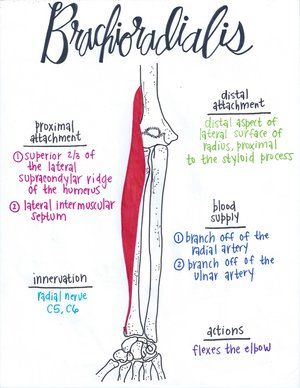 Brachioradialis
proximal
attachment
① superior 2/3 of
the lateral
supracondylar ridge
of the humerus
② lateral intermuscular
septum
innervation
radial nerve
C5, C6
distal
attachment
distal aspect of
lateral surface of
radius, proximal
to the styloid process
blood
supply
① branch off of the
radial artery
② branch off of the
ulnar artery
actions
flexes the elbow